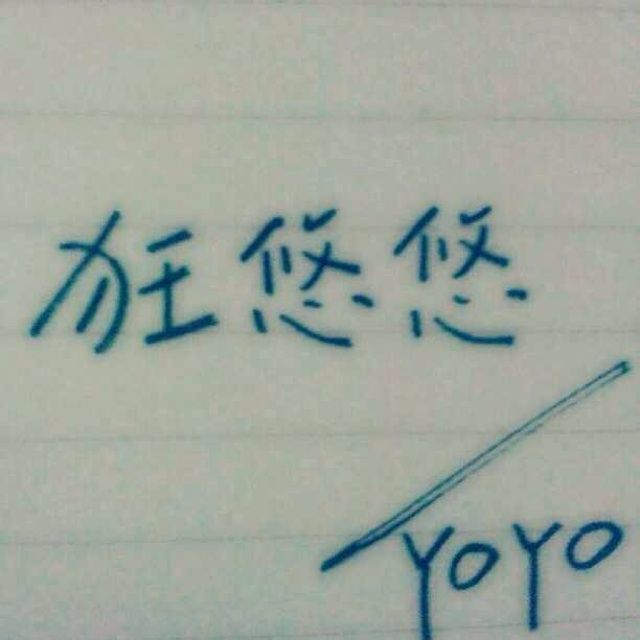 狂悠悠
YOYO